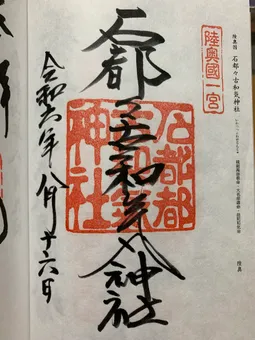 陸奥国 石都々古和気神社
陸奥國一宮
石都々古和気神社
石都都
神社
令和六年八月十六日